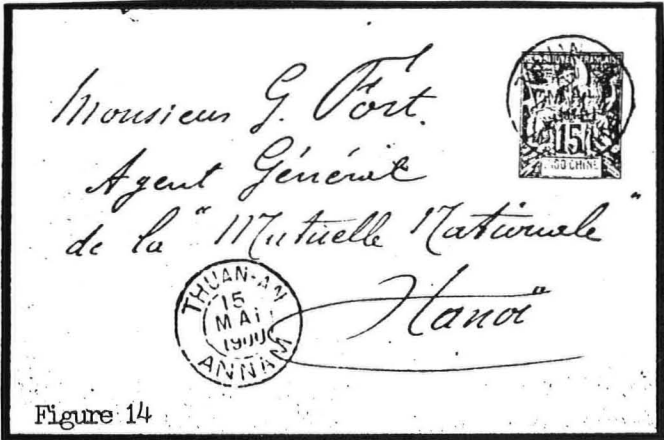 Monsieur G. Fort.
Agent Général
de la "Mutuelle Nationale"
Hanoï
15
INDO-CHINE
THUAN-AN
15
MAI
1900
ANNAM
Figure 14